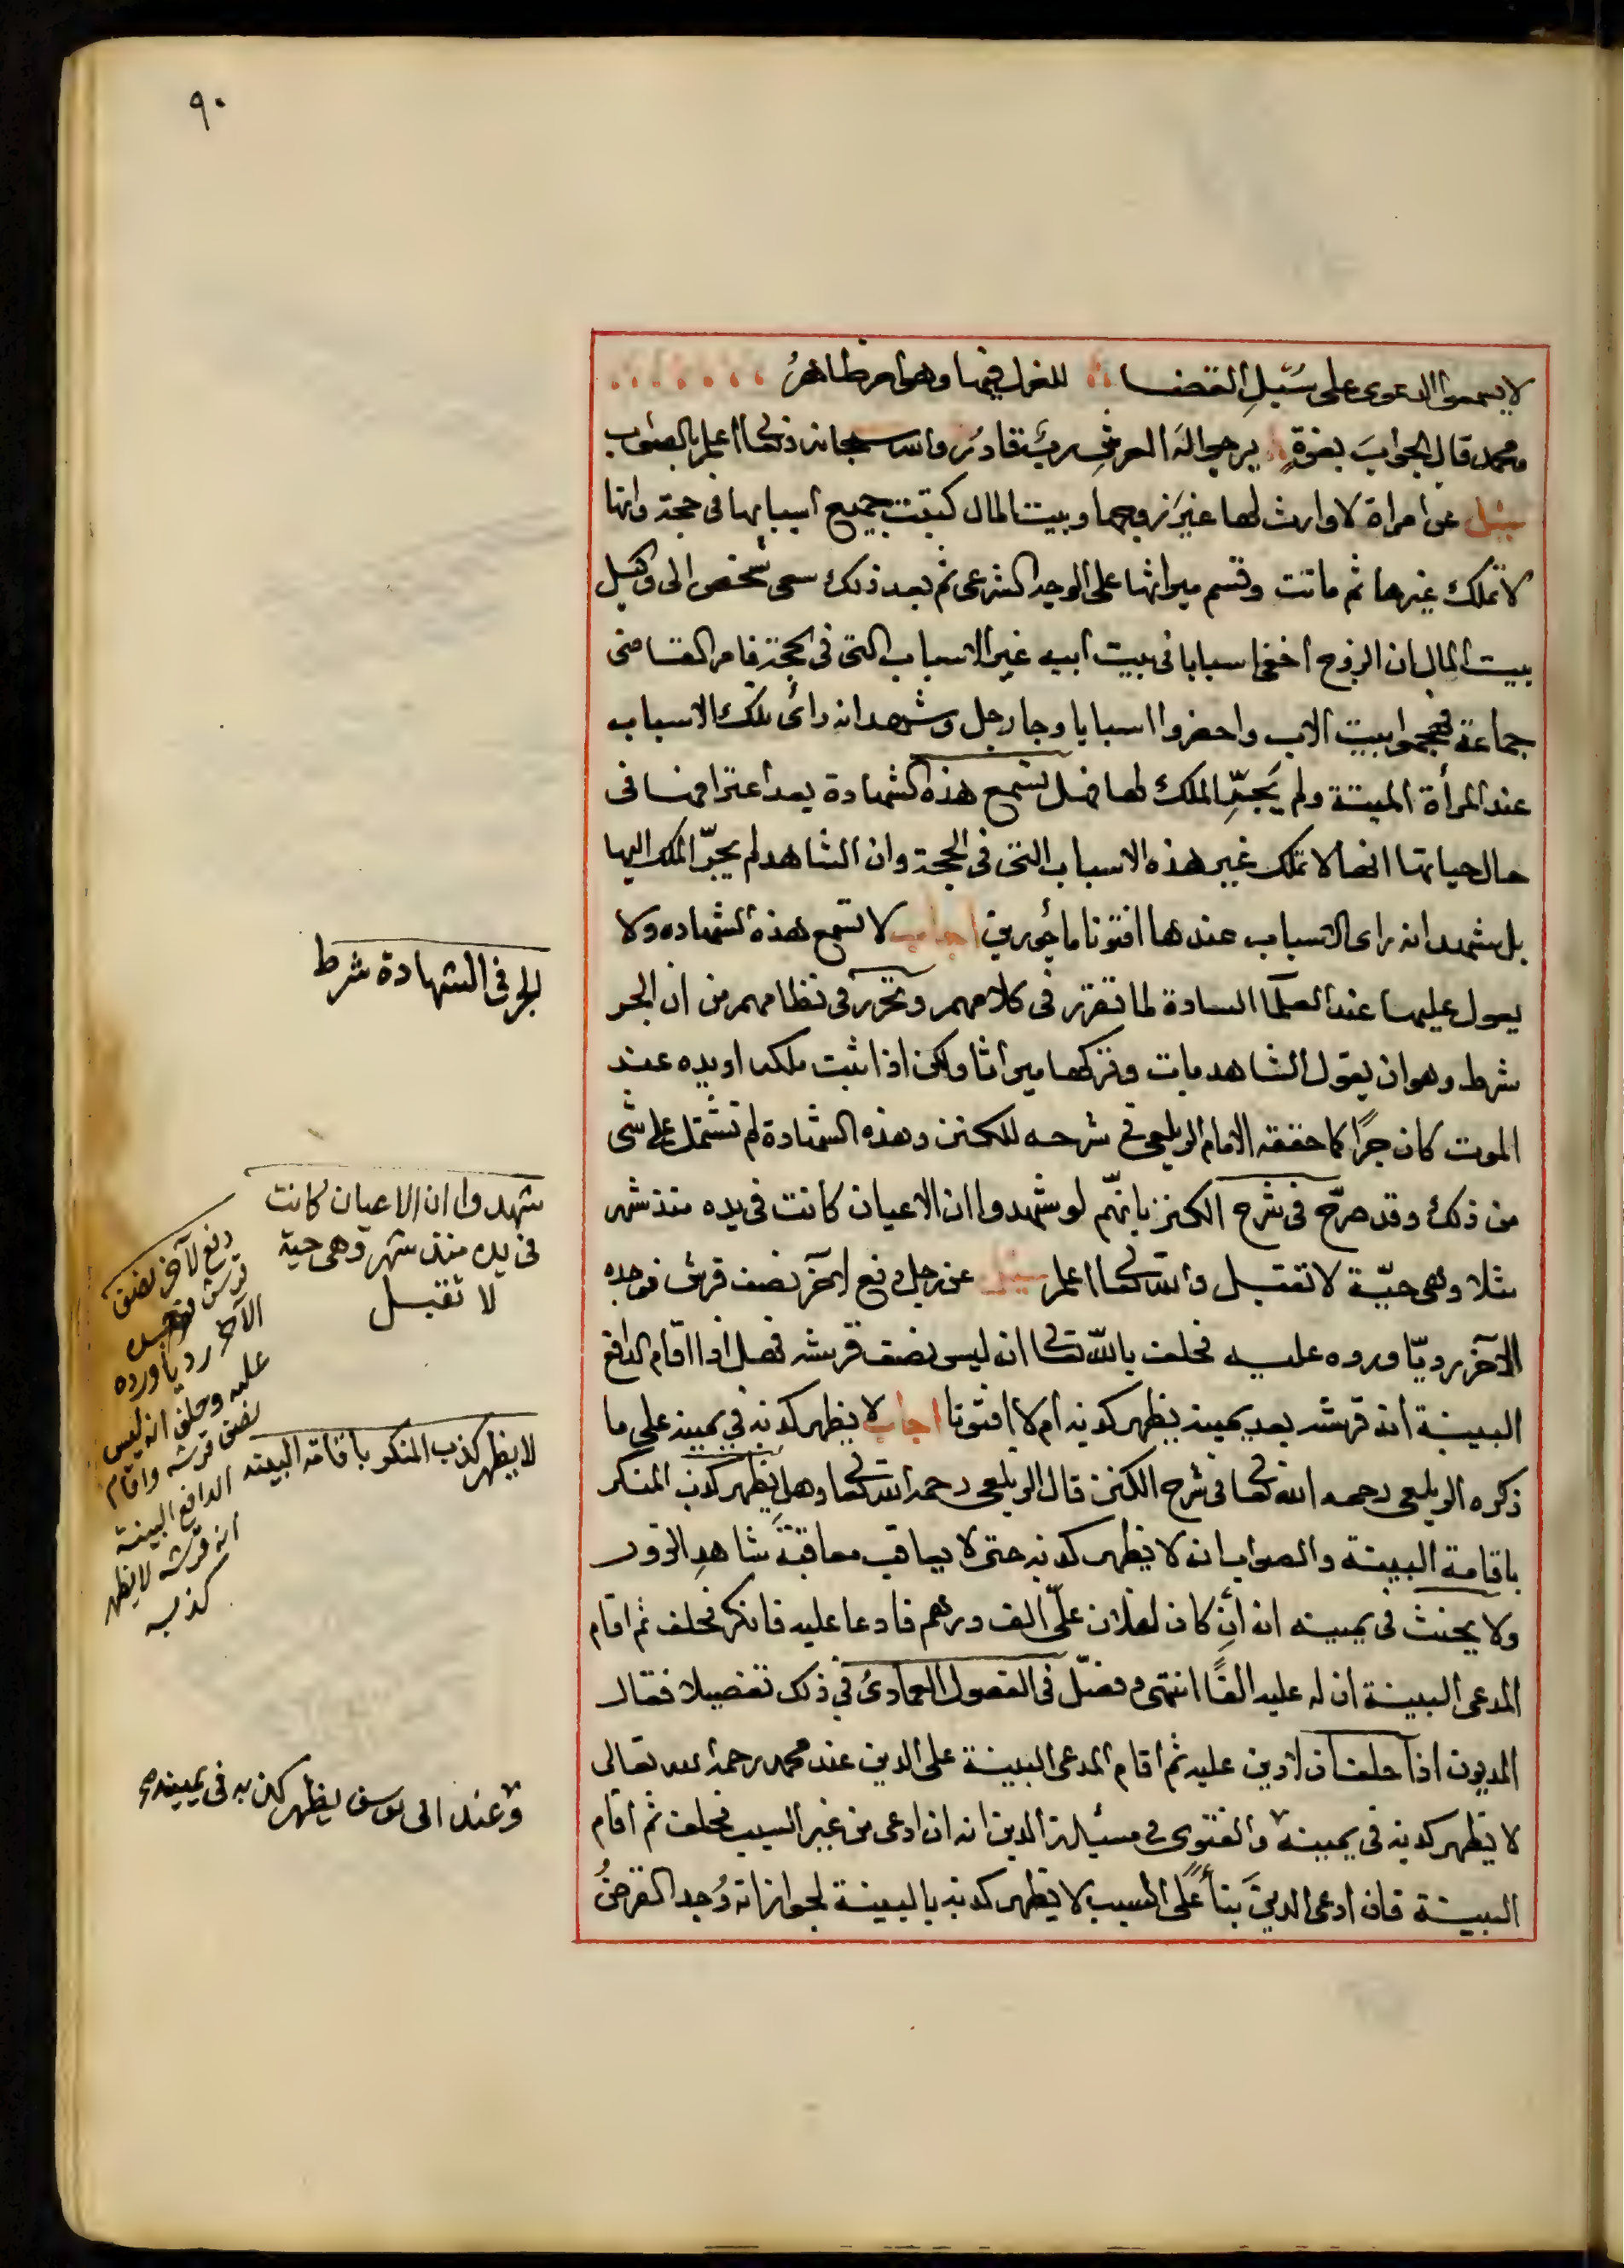 ٩٠
لا يسمع الدعوى على سبيل القضا للعزل فيها وهو امر ظاهرُ
ومحمد قال الجوابَ بغزةٍ يرجو الهَ العرش ربٌ قادرُ والله سبحانه وتعالى اعلم بالصواب
سئل عن امراة لا وارث لها غير زوجها وبيت المال كتبت جميع اسبابها في حجة وانها
لا تملك غيرها ثم ماتت وقسم ميراثها على الوجه الشرعى ثم بعد ذلك سعى شخص الى وكيل
بيت المال ان الزوج اخفى اسبابا في بيت ابيه غير الاسباب التى في الحجة فامر القاضى
جماعة فهجموا بيت الاب واحضروا اسبابا وجا رجل وشهد انه رأى تلك الاسباب
عند المرأة الميتة ولم يَجُرِّ الملك لها فهل تسمع هذه الشهادة بعد اعترافها في
حال حياتها انها لا تملك غير هذه الاسباب التى في الحجة وان الشاهد لم يجرّ الملك اليها
بل شهد انه راى الاسباب عندها افتونا مأجورين اجاب لا تسمع هذه الشهاده ولا
يعول عليها عند العلما السادة لما تقرر في كلامهم وتحرر في نظامهم من ان الجر
شرط وهو ان يقول الشاهد مات وتركها ميراثا ولكن اذا ثبت ملكه او يده عند
الموت كان جرًا كما حققه الامام الزيلعى في شرحه للكنز وهذه الشهادة لم تشتمل على شى
من ذلك وقد صرّح في شرح الكنز بانهّم لو شهدوا ان الاعيان كانت في يده منذ شهر
مثلا وهى حيّة لا تقبل والله تعالى اعلم سئل عن رجل دفع لآخر نصف قرش فوجده
الآخر رديّا ورده عليه فحلف بالله تعالى ان ليس نصف قرشه فهل اذا اقام الدافع
البينة انه قرشه بعد يمينه يظهر كذبه ام لا افتونا اجاب لا يظهر كذبه في يمينه على ما
ذكره الزيلعى رحمه الله تعالى في شرح الكنز قال الزيلعى رحمه الله تعالى وهل يظهر كذب المنكر
باقامة البينة والصواب انه لا يظهر كذبه حتى لا يعاقب معاقبةَ شاهدِ الزور
ولا يحنث في يمينه انه أنِ كان لفلان علىّ الف درهم فادعا عليه فانكر فحلف ثم اقام
المدعى البينة ان له عليه الفًا انتهى وفصّل في الفصول العمادىُ في ذلك تفصيلا فقال
المديون اذا حلف ان لا دين عليه ثم اقام المدعى البينة على الدين عند محمد رحمه الله تعالى
لا يظهر كذبه في يمينه والفتوى في مسئلة الدين انه ان ادعى من غير السبب فحلف ثم اقام
البينة فان ادعى الدينَ بنأً على السبب لا يظهر كذبه بالبينة لجواز انه وُجد القرضُ
الجر في الشهادة شرط
شهدوا ان الاعيان كانت
في يده منذ شهر وهى حية
لا تقبل
دفع لآخر نصف
قرش فوجده
الآخر رديا ورده
عليه وحلف انه ليس
نصف قرشه واقام
الدافع البينة
انه قرشه لا يظهر
كذبه
لا يظهر كذب المنكر باقامة البينه
وعند ابى يوسف يظهر كذبه في يمينه